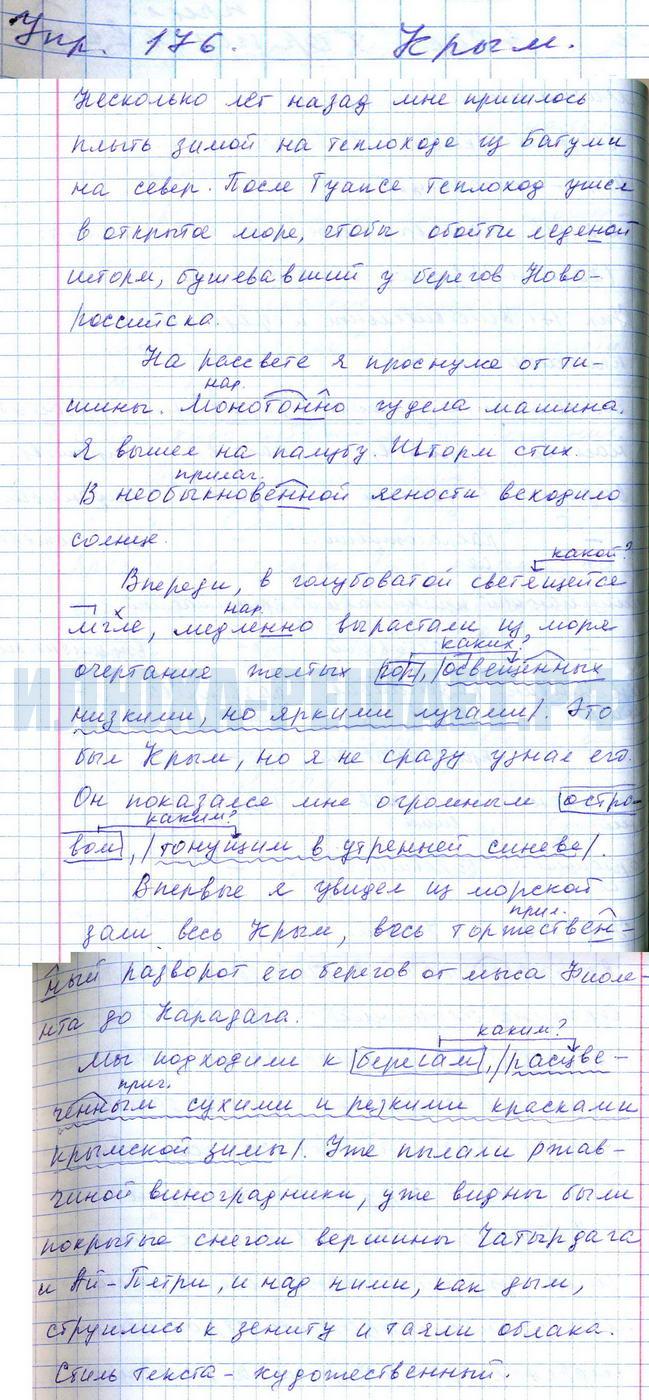 Упр. 176. Крым.
Несколько лет назад мне пришлось
плыть зимой на теплоходе из Батуми
на север. После Туапсе теплоход ушел
в открытое море, чтобы обойти ледяной
шторм, бушевавший у берегов Ново-
российска.
На рассвете я проснулся от ти-
нар.
шины. Монотонно гудела машина.
Я вышел на палубу. Шторм стих.
прилаг.
В необыкновенной ясности всходило
солнце.
какой?
Впереди, в голубоватой светящейся
нар.
мгле, медленно вырастали из моря
каких?
очертания желтых гор, освещенных
низкими, но яркими лучами. Это
был Крым, но я не сразу узнал его.
Он показался мне огромным остро-
каким?
вом, тонущим в утренней синеве.
Впервые я увидел из морской
прил.
дали весь Крым, весь торжествен-
ный разворот его берегов от мыса Фиоле-
нта до Карадага.
каким?
Мы подходили к берегам, расцве-
прич.
ченным сухими и резкими красками
крымской зимы. Уже пылали ржав-
чиной виноградники, уже видны были
покрытые снегом вершины Чатырдага
и Ай-Петри, и над ними, как дым,
струились к зениту и таяли облака.
Стиль текста - художественный.